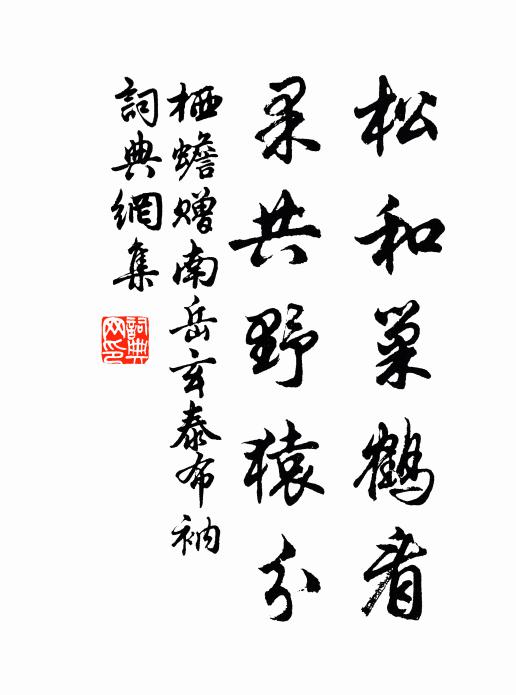 松和巢鶴看
果共野猿分
栖蟾贈南岳玄泰布衲
詞典網集
詞典网印